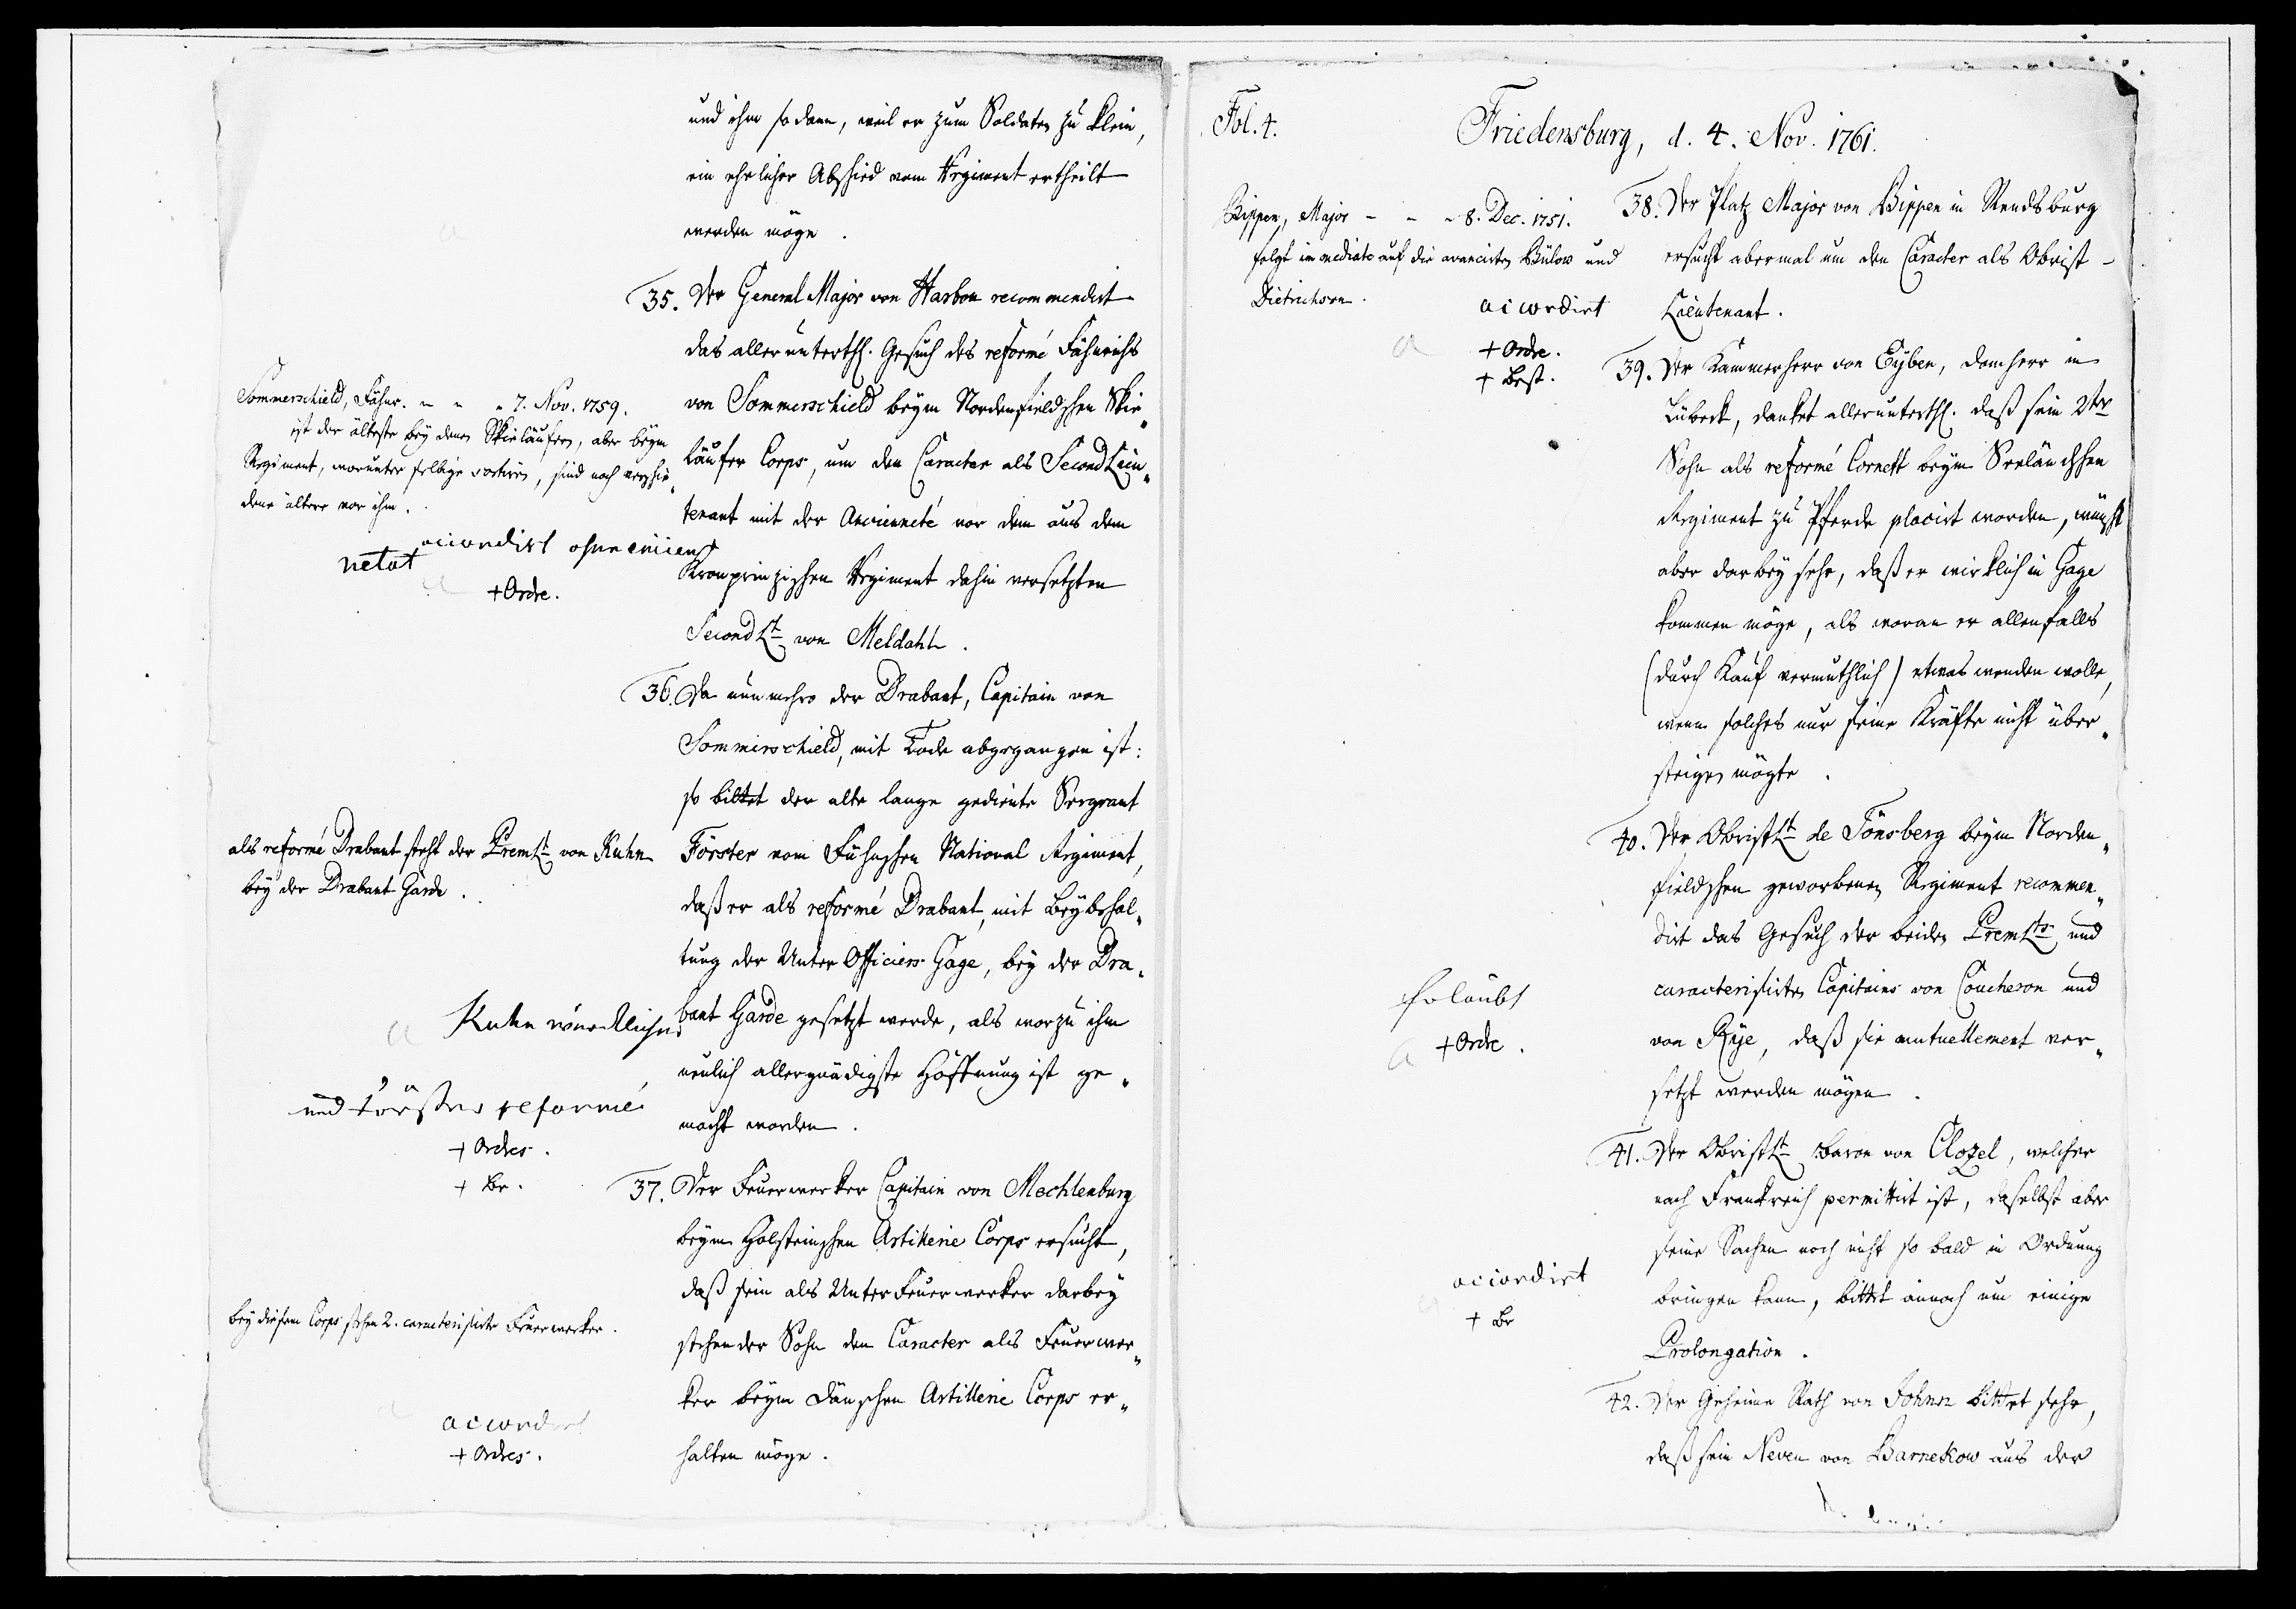 und ihm sodann, weil er zum Soldaten zu klein,
ein ehrlicher Abschied vom Regiment ertheilt
werden möge.
35. Der General Major von Harbou recommendirt
das allerunterth. Gesuch des reformé Fähnrichs
von Sommerschield beym Nordenfieldschen Skie„
läufer Corps, um den Caracter als Second Lieu„
tenant mit der Ancienneté vor dem aus dem
Kronprinzischen Regiment dahin versetzten
Second Lt. von Meldahl.
Sommerschield, Fähnr. - - - 7. Nov. 1759.
ist der älteste bey denen Skieläufern, aber beym
Regiment, worunter selbige sortiren, sind noch verschie„
dene ältere vor ihm.
accordirt ohne ancien
netet
+ Ordre.
36. Da nunmehro der Drabant, Capitain von
Sommerschield, mit Tode abgegangen ist:
so bittet der alte lange gediente Sergeant
Förster vom Fühnschen National Regiment,
daß er als reformé Drabant, mit Beybehal„
tung der Unter Officiers Gage, bey der Dra„
bant Garde gesetzt werde, als worzu ihm
neulich allergnädigste Hoffnung ist ge„
macht worden.
als reformé Drabant steht der PremLt. von Kuhn
bey der Drabant Garde.
Kuhn würcklicher
und Förster reformé
+ Ordres.
+ Br.
37. Der Feuerwerker Capitain von Mechlenburg
beym Holsteinschen Artillerie Corps ersucht,
daß sein als Unter Feuerwerker darbey
stehender Sohn den Caracter als Feuerwer„
ker beym Dänschen Artillerie Corps er„
halten möge.
bey diesem Corps stehen 2. caracterisirte Feuerwerker.
accordirt
+ Ordres.
Fol. 4.
Friedensburg, d. 4. Nov. 1761.
38. Der Platz Major von Bippen in Rendsburg
ersucht abermal um den Caracter als Obrist-
Lieutenant.
Bippen, Major - - - 8. Dec. 1751.
folgt immediate auf die avancirten Bülow und
Dietrichson.
accordirt
+ Ordre.
+ Best.
39. Der Kammerherr von Eyben, Domherr in
Lübeck, danket allerunterth. daß sein 2ter
Sohn als reformé Cornett beym Seeländschen
Regiment zu Pferde placirt worden, wünscht
aber darbey sehr, daß er wirklich in Gage
kommen möge, als woran er allenfalls
(durch Kauf vermuthlich) etwas wenden wolle,
wenn solches nur seine Kräfte nicht über„
steigen mögte.
40. Der ObristLt. de Tönsberg beym Norden„
fieldschen geworbenen Regiment recommen„
dirt das Gesuch der beiden PremLts. und
caracterisirten Capitains von Coucheron und
von Rye, daß sie mutuellement ver„
setzt werden mögen.
Erlaubt
+ Ordre.
41. Der ObristLt. Baron von Clozel, welcher
nach Frankreich permittirt ist, daselbst aber
seine Sachen noch nicht so bald in Ordnung
bringen kann, bittet annoch um einige
Prolongation.
accordirt
+ Br
42. Der Geheime Rath von Johnn bittet sehr,
daß sein Neveu von Barnekow aus der